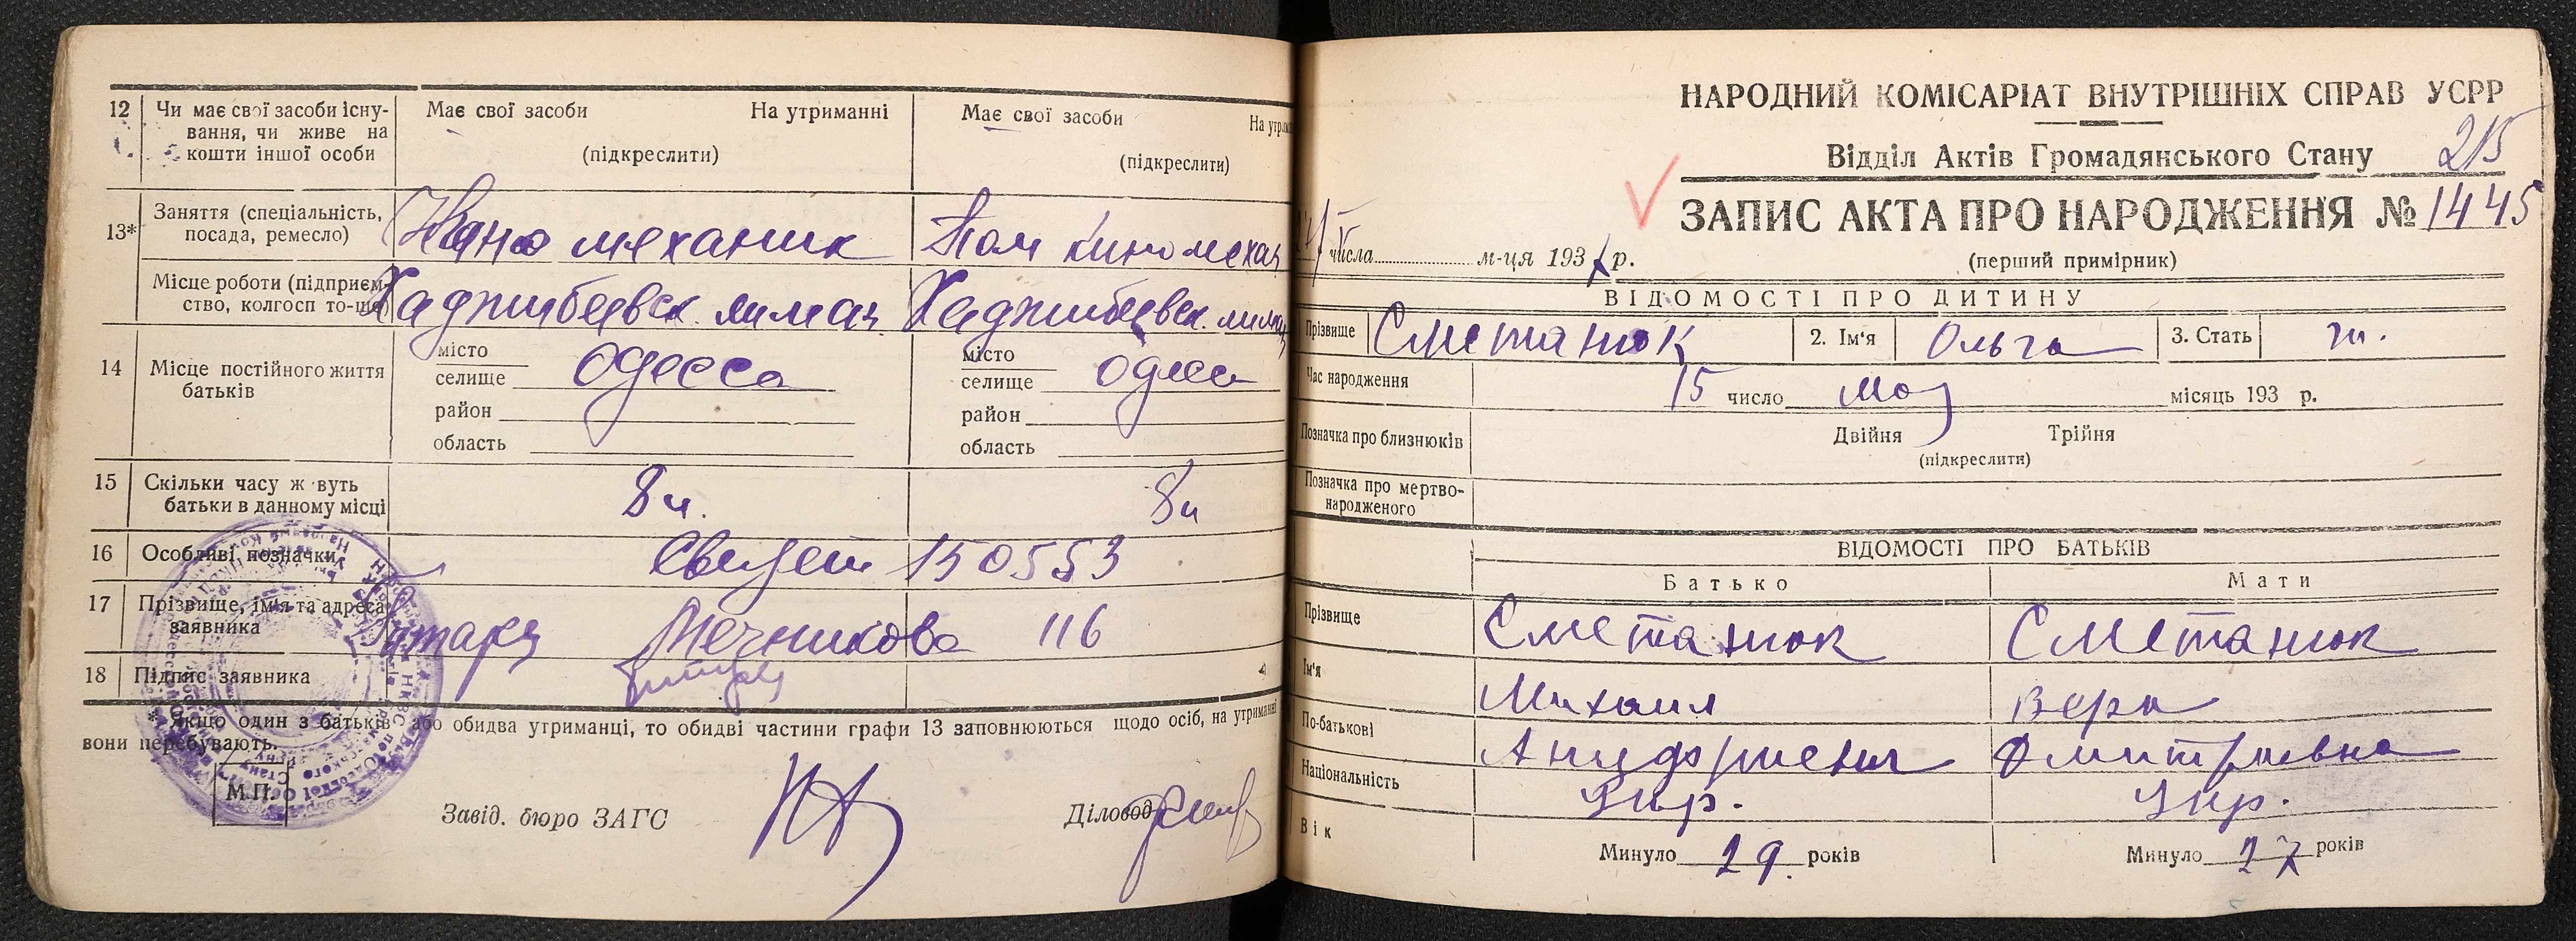 12 Чи має свої засоби існу-
вання, чи живе на
кошти іншої особи
Має свої засоби На утриманні
(підкреслити)
Має свої засоби На утрим
(підкреслити)
13* Заняття (спеціальність,
посада, ремесло)
механик
Пом киномехан
Місце роботи (підприєм-
ство, колгосп то-що)
Хаджибеевск. лиман
Хаджибеевск. лиман
14 Місце постійного життя
батьків
місто
селище Одесса
район
область
місто
селище Одесс
район
область
15 Скільки часу ж вуть
батьки в данному місці
8 ч.
8 ч
16 Особливі позначки
150553
17 Прізвище, ім'я та адреса
заявника
Мечникова 116
18 Підпис заявника
* Якщо один з батьків або обидва утриманці, то обидві частини графи 13 заповнюються щодо осіб, на утриманні
вони перебувають.
М.П.
Завід. бюро ЗАГС
Діловод
НАРОДНИЙ КОМІСАРІАТ ВНУТРІШНІХ СПРАВ УСРР
Відділ Актів Громадянського Стану 215
ЗАПИС АКТА ПРО НАРОДЖЕННЯ № 1445
числа м-ця 193 р.
(перший примірник)
ВІДОМОСТІ ПРО ДИТИНУ
Прізвище Сметанюк 2. Ім'я Ольга 3. Стать ж.
Час народження 15 число мая місяць 193 р.
Позначка про близнюків Двійня Трійня
(підкреслити)
Позначка про мертво-
народженого
ВІДОМОСТІ ПРО БАТЬКІВ
Батько Мати
Прізвище Сметанюк Сметанюк
Ім'я Михаил Вера
По-батькові Дмитриевна
Національність Укр. Укр.
Вік Минуло 29 років Минуло 27 років